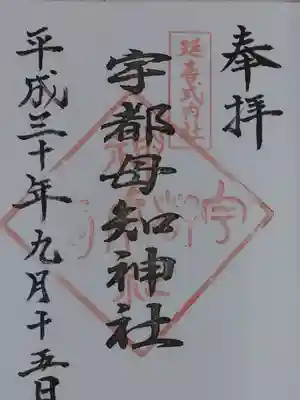 奉拝
延喜式内社
宇都母知神社
平成三十年九月十五日